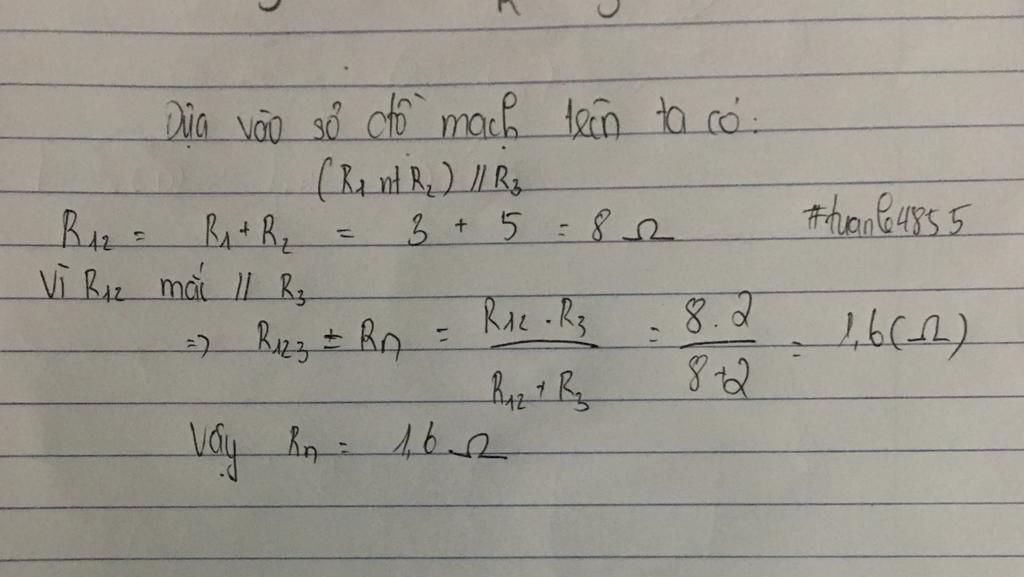 Dựa vào sơ đồ mạch trên ta có:
(R1 nt R2) // R3
R12 = R1 + R2 = 3 + 5 = 8 Ω #tuanle4855
Vì R12 mắc // R3
=> R123 = Rn = R12 . R3 / R12 + R3 = 8 . 2 / 8 + 2 = 1,6 (Ω)
Vậy Rn = 1,6 Ω